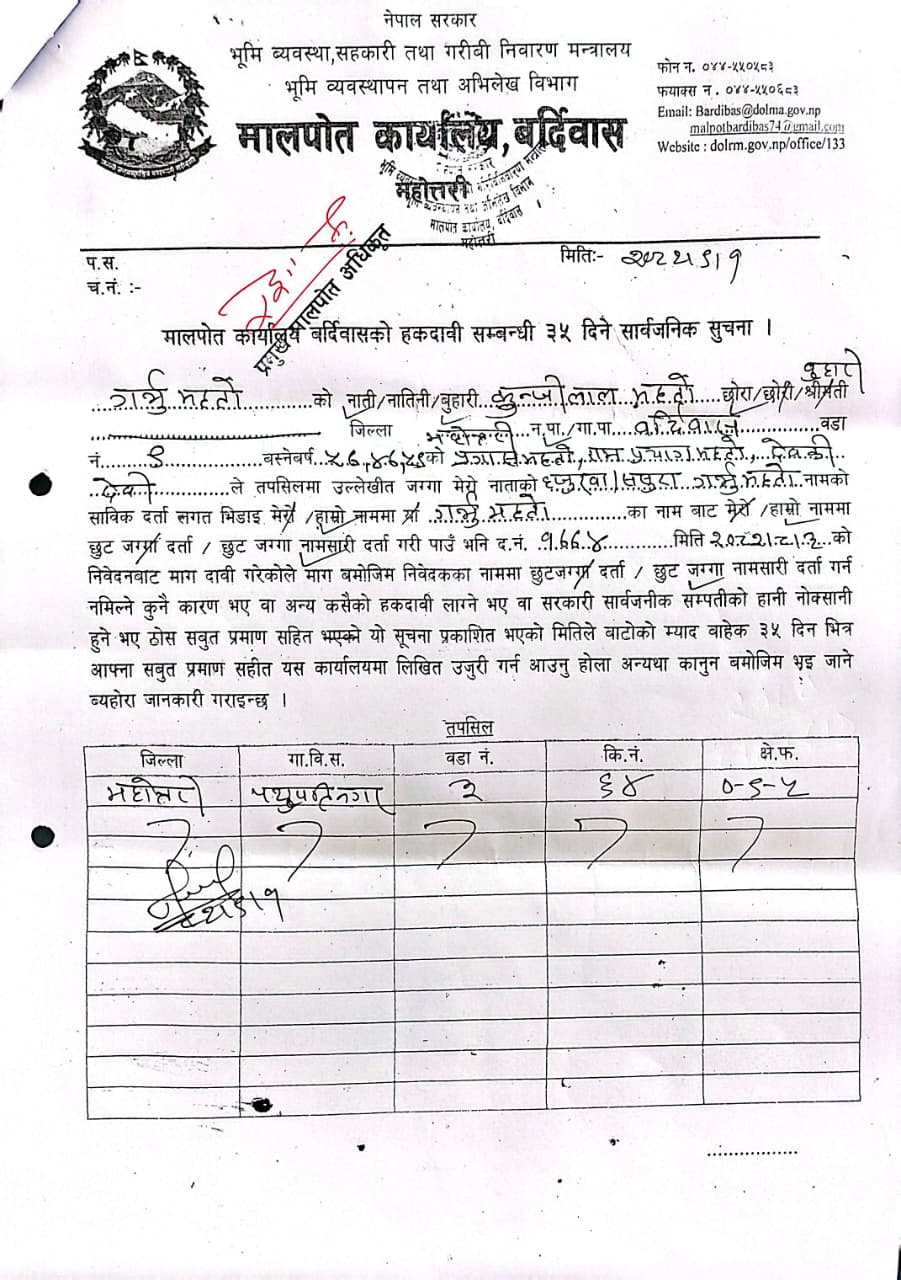 नेपाल सरकार
भूमि व्यवस्था,सहकारी तथा गरीवी निवारण मन्त्रालय
भूमि व्यवस्थापन तथा अभिलेख विभाग
मालपोत कार्यालय,बर्दिवास
महोत्तरी
फोन न. ०४४-५५०५८३
फयाक्स न . ०४४-५५०६८३
Email: Bardibas@dolma.gov.np
malpotbardibas74@gmail.com
Website : dolrm.gov.np/office/133
मालपोत कार्यालय, बर्दिवास
महोत्तरी
प.स.
मितिः-
च.नं. :-
प्रमुख मालपोत अधिकृत
मालपोत कार्यालय बर्दिवासको हकदावी सम्बन्धी ३५ दिने सार्वजनिक सुचना ।
महतो को नाती/नातिनी/बुहारी महतो छोरा/छोरी/श्रीमती
जिल्ला महोत्तरी न.पा/गा.पा. बर्दिवास वडा
नं. ९ बस्नेबर्ष को महतो, महतो, देवकी
देवी ले तपसिलमा उल्लेखीत जग्गा मेरो नाताको महतो नामको
साविक दर्ता लगत भिडाइ मेरो /हाम्रो नाममा श्री महतो का नाम बाट मेरो /हाम्रो नाममा
छुट जग्गा दर्ता / छुट जग्गा नामसारी दर्ता गरी पाउँ भनि द.नं. १९६६४ मिति २०८२।८।३ को
निवेदनबाट माग दावी गरेकोले माग बमोजिम निवेदकका नाममा छुटजग्गा दर्ता / छुट जग्गा नामसारी दर्ता गर्न
नमिल्ने कुनै कारण भए वा अन्य कसैको हकदावी लाग्ने भए वा सरकारी सार्वजनीक सम्पतीको हानी नोक्सानी
हुने भए ठोस सवुत प्रमाण सहित भएको यो सूचना प्रकाशित भएको मितिले बाटोको म्याद बाहेक ३५ दिन भित्र
आफ्ना सबुत प्रमाण सहीत यस कार्यालयमा लिखित उजुरी गर्न आउनु होला अन्यथा कानुन बमोजिम भइ जाने
ब्यहोरा जानकारी गराइन्छ ।
तपसिल
जिल्ला गा.वि.स. वडा नं. कि.नं. क्षे.फ.
महोत्तरी पशुपतिनगर ३ ६४ ०-९-५